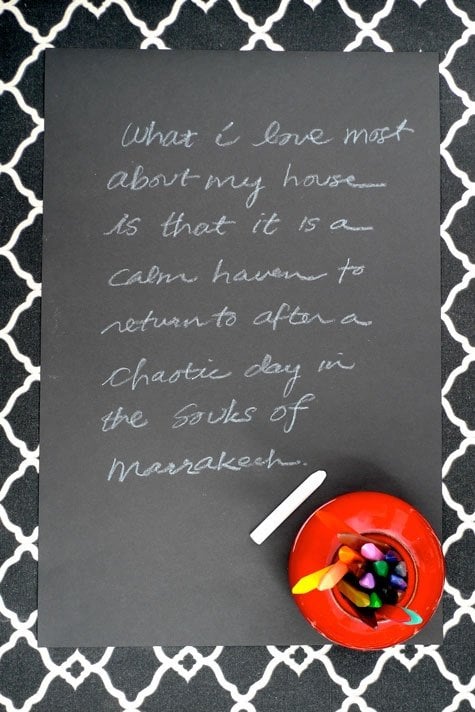 What i love most
about my house
is that it is a
calm haven to
return to after a
chaotic day in
the souks of
marrakech.